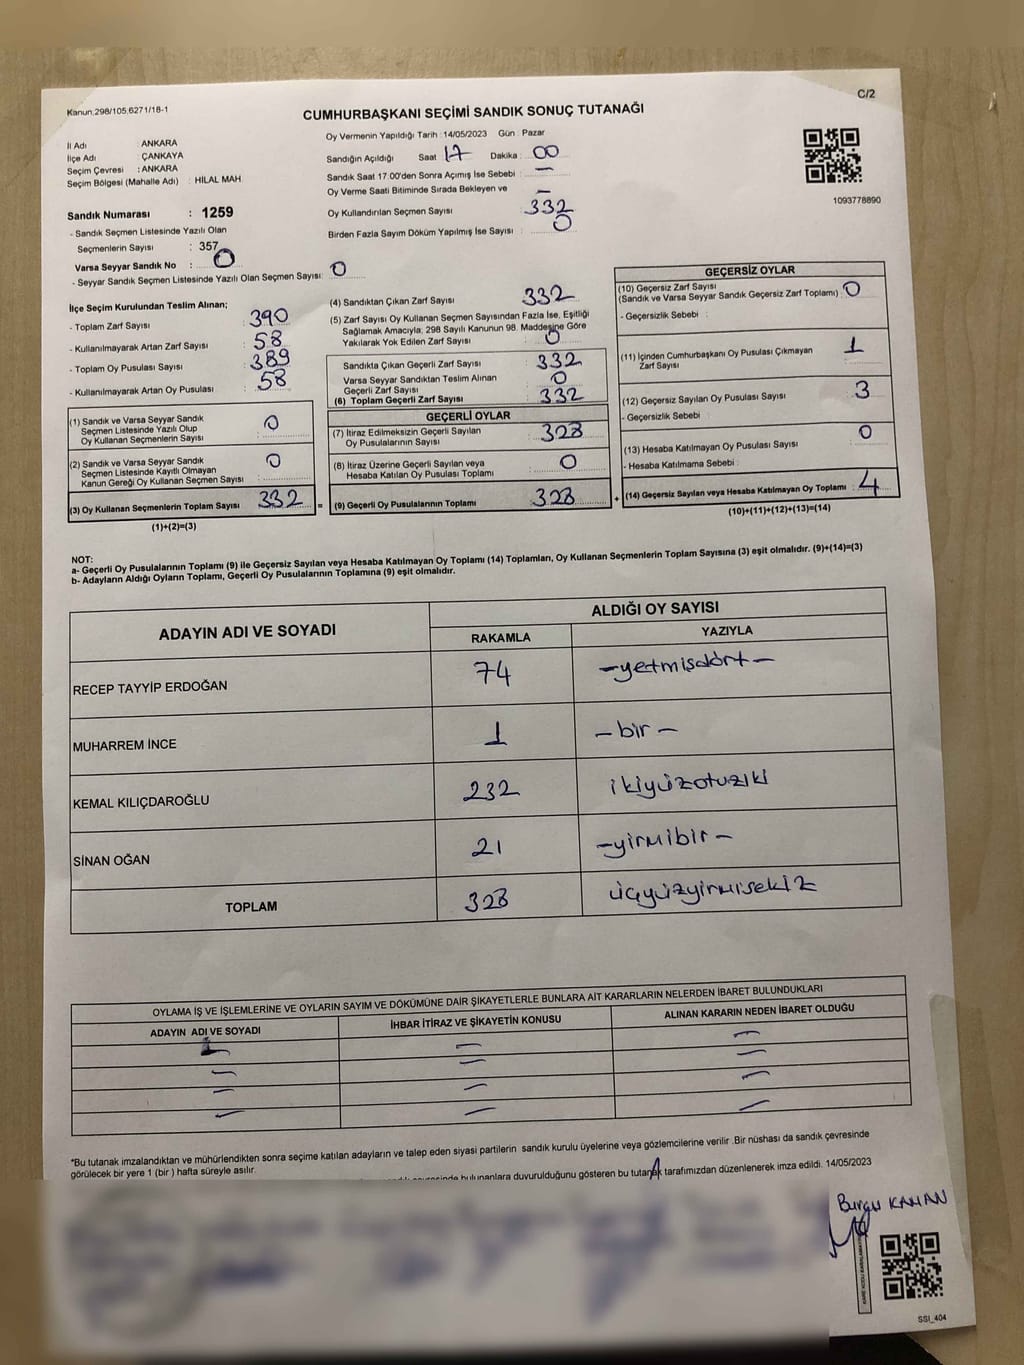 C/2
Kanun.298/105,6271/18-1
CUMHURBAŞKANI SEÇİMİ SANDIK SONUÇ TUTANAĞI
İl Adı : ANKARA
İlçe Adı : ÇANKAYA
Seçim Çevresi : ANKARA
Seçim Bölgesi (Mahalle Adı) : HİLAL MAH
Sandık Numarası : 1259
- Sandık Seçmen Listesinde Yazılı Olan
Seçmenlerin Sayısı : 357
Varsa Seyyar Sandık No : 0
- Seyyar Sandık Seçmen Listesinde Yazılı Olan Seçmen Sayısı: 0
Oy Vermenin Yapıldığı Tarih : 14/05/2023 Gün : Pazar
Sandığın Açıldığı Saat : 17 Dakika : 00
Sandık Saat 17:00'den Sonra Açımış İse Sebebi : —
Oy Verme Saati Bitiminde Sırada Bekleyen ve —
Oy Kullandırılan Seçmen Sayısı : 332
Birden Fazla Sayım Döküm Yapılmış İse Sayısı : 0
1093778890
İlçe Seçim Kurulundan Teslim Alınan;
- Toplam Zarf Sayısı : 390
- Kullanılmayarak Artan Zarf Sayısı : 58
- Toplam Oy Pusulası Sayısı : 389
- Kullanılmayarak Artan Oy Pusulası : 58
(1) Sandık ve Varsa Seyyar Sandık
Seçmen Listesinde Yazılı Olup
Oy Kullanan Seçmenlerin Sayısı : 0
(2) Sandık ve Varsa Seyyar Sandık
Seçmen Listesinde Kayıtlı Olmayan
Kanun Gereği Oy Kullanan Seçmen Sayısı : 0
(3) Oy Kullanan Seçmenlerin Toplam Sayısı : 332
(1)+(2)=(3)
(4) Sandıktan Çıkan Zarf Sayısı : 332
(5) Zarf Sayısı Oy Kullanan Seçmen Sayısından Fazla İse, Eşitliği
Sağlamak Amacıyla; 298 Sayılı Kanunun 98. Maddesine Göre
Yakılarak Yok Edilen Zarf Sayısı : 0
Sandıkta Çıkan Geçerli Zarf Sayısı : 332
Varsa Seyyar Sandıktan Teslim Alınan
Geçerli Zarf Sayısı : 0
(6) Toplam Geçerli Zarf Sayısı : 332
=
GEÇERLİ OYLAR
(7) İtiraz Edilmeksizin Geçerli Sayılan
Oy Pusulalarının Sayısı : 328
(8) İtiraz Üzerine Geçerli Sayılan veya
Hesaba Katılan Oy Pusulası Toplamı : 0
(9) Geçerli Oy Pusulalarının Toplamı : 328
+
GEÇERSİZ OYLAR
(10) Geçersiz Zarf Sayısı
(Sandık ve Varsa Seyyar Sandık Geçersiz Zarf Toplamı) : 0
- Geçersizlik Sebebi :
(11) İçinden Cumhurbaşkanı Oy Pusulası Çıkmayan
Zarf Sayısı : 1
(12) Geçersiz Sayılan Oy Pusulası Sayısı : 3
- Geçersizlik Sebebi :
(13) Hesaba Katılmayan Oy Pusulası Sayısı : 0
- Hesaba Katılmama Sebebi :
(14) Geçersiz Sayılan veya Hesaba Katılmayan Oy Toplamı : 4
(10)+(11)+(12)+(13)=(14)
NOT:
a- Geçerli Oy Pusulalarının Toplamı (9) ile Geçersiz Sayılan veya Hesaba Katılmayan Oy Toplamı (14) Toplamları, Oy Kullanan Seçmenlerin Toplam Sayısına (3) eşit olmalıdır. (9)+(14)=(3)
b- Adayların Aldığı Oyların Toplamı, Geçerli Oy Pusulalarının Toplamına (9) eşit olmalıdır.
ADAYIN ADI VE SOYADI ALDIĞI OY SAYISI
RAKAMLA YAZIYLA
RECEP TAYYİP ERDOĞAN 74 -yetmişdört-
MUHARREM İNCE 1 - bir -
KEMAL KILIÇDAROĞLU 232 ikiyüzotuziki
SİNAN OĞAN 21 -yirmibir-
TOPLAM 328 üçyüzyirmisekiz
OYLAMA İŞ VE İŞLEMLERİNE VE OYLARIN SAYIM VE DÖKÜMÜNE DAİR ŞİKAYETLERLE BUNLARA AİT KARARLARIN NELERDEN İBARET BULUNDUKLARI
ADAYIN ADI VE SOYADI İHBAR İTİRAZ VE ŞİKAYETİN KONUSU ALINAN KARARIN NEDEN İBARET OLDUĞU
— — —
— — —
— — —
— — —
*Bu tutanak imzalandıktan ve mühürlendikten sonra seçime katılan adayların ve talep eden siyasi partilerin sandık kurulu üyelerine veya gözlemcilerine verilir .Bir nüshası da sandık çevresinde
görülecek bir yere 1 (bir ) hafta süreyle asılır.
bulunanlara duyurulduğunu gösteren bu tutanak tarafımızdan düzenlenerek imza edildi. 14/05/2023
Burçu KAHAN
SSI_404